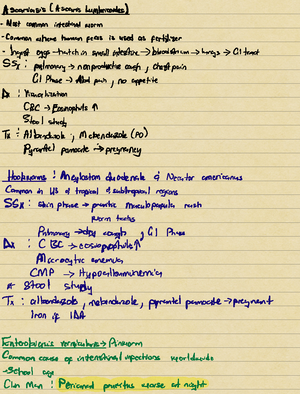 Ascariasis (Ascaris Lumbricoides)
- Most common intestinal worm
- Common where human feces is used as fertilizer
- Ingest eggs → hatch in small intestine → bloodstream → lungs → GI tract
SSx: pulmonary → nonproductive cough, chest pain
GI Phase → Abd pain, no appetite
Dx: Visualization
CBC → Eosinophils ↑
Stool study
Tx: Albendazole, Mebendazole (PO)
Pyrantel pamoate → pregnancy
Hookworms: Ancylostoma duodenale & Necator americanus
Common in US & tropical & subtropical regions
SSx: skin phase → pruritic maculopapular rash
worm tracks
Pulmonary → dry cough, GI Phase
Dx: CBC → eosinophils ↑
Microcytic anemia
CMP → Hypoalbuminemia
* Stool study
Tx: albendazole, mebendazole, pyrantel pamoate → pregnant
Iron if IDA
Enterobiasis vermicularis → Pinworm
Common cause of intestinal infections worldwide
- School age
Clin Man: Perianal pruritus worse at night